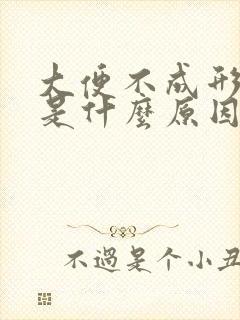 大便不成形
是什麼原因
不過是个小丑